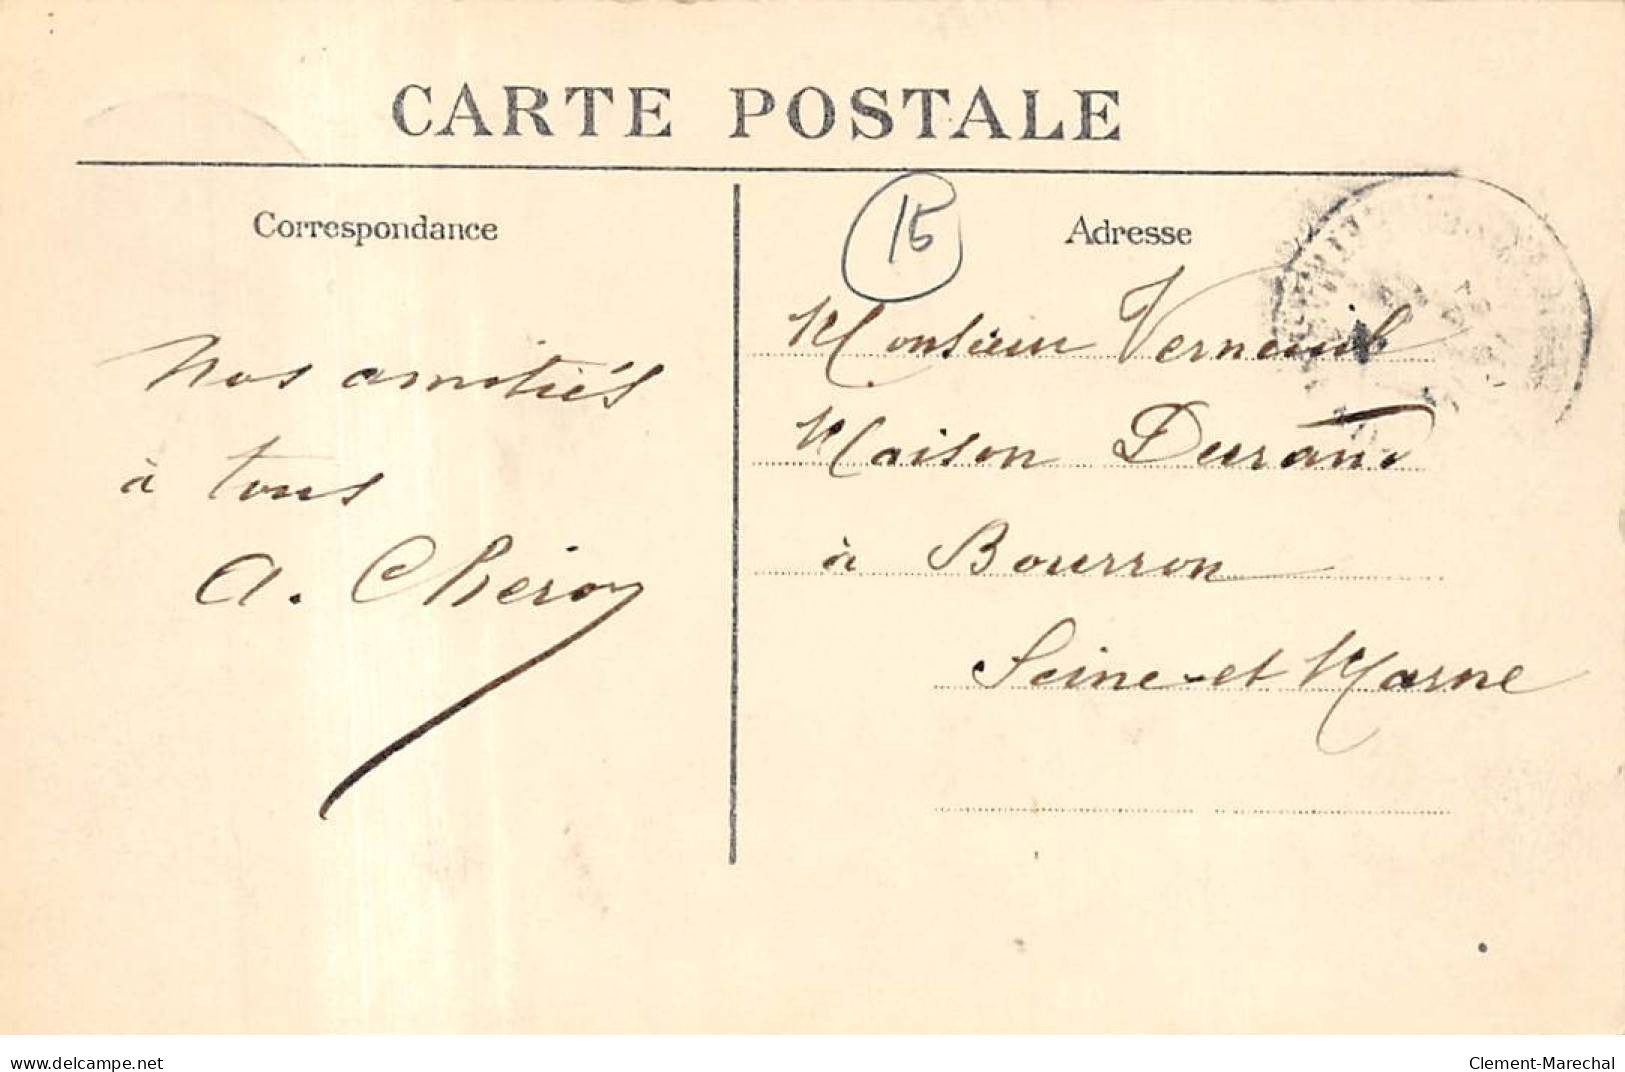 CARTE POSTALE
Correspondance
Nos amitiés
à tous
A. Chéroy
15
Adresse
Monsieur Verneuil
Maison Durand
à Bourron
Seine-et Marne
www.delcampe.net
Clement-Marechal